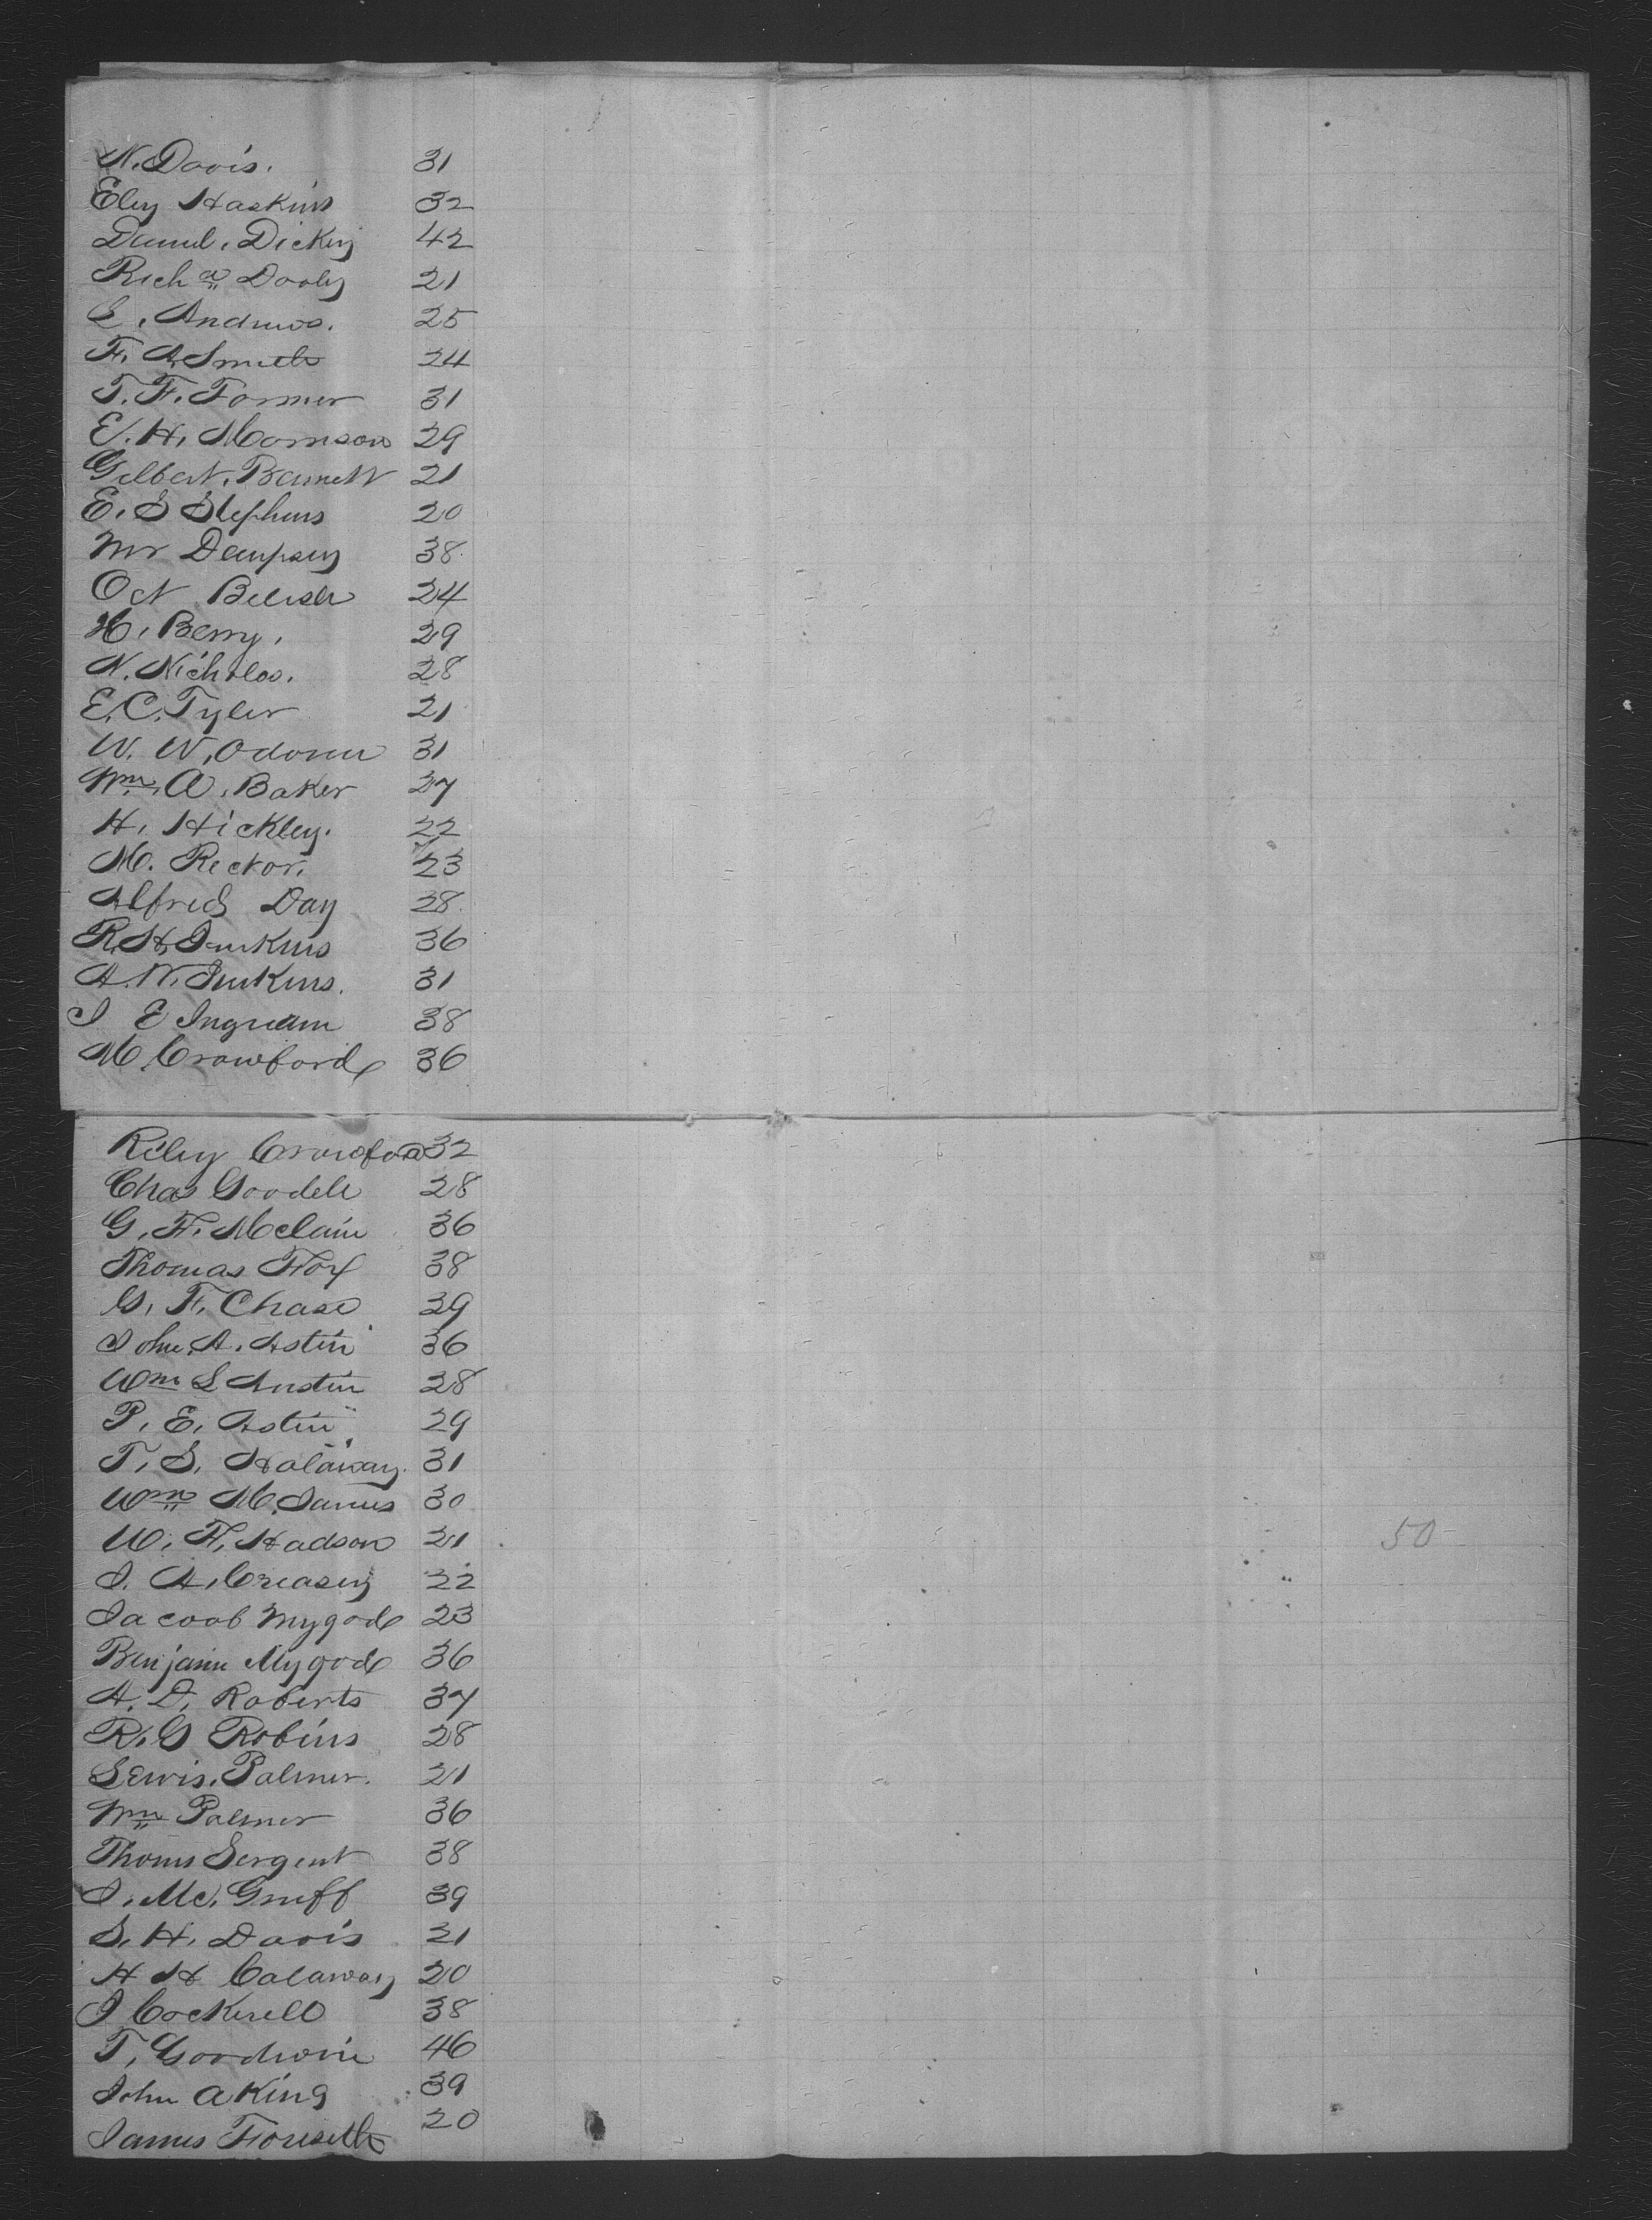 N. Davis. 31
Eley Haskins 32
Daniel. Dickey 42
Richd Dooley 21
L. Andrews. 25
F. A. Smith 24
T. F. Farmer 31
E. H. Morrison 29
Gilbert. Barnett 21
E. S Stephens 20
Mr Dempsey 38
Oct 24
H. Berry. 29
N. Nicholas. 28
E. C. Tyler 21
W. W. Odonu 31
Wm. A. Baker 27
H. Hickley. 22
M. Rector. 23
Alfred Day 28
R. H. Jenkins 36
A. W. Jenkins. 31
J E Ingram 38
M. Crawford 36
Riley Crawford 32
Chas Goodell 28
G. F. McClain 36
Thomas Fox 38
G. F. Chase 39
John. A. Astin 36
Wm L Austin 28
P. E. Astin 29
T. S. Halaway. 31
Wm M. James 30
W. F. Hadson 21
J. A. Creasey 22
Jacoob Mygode 23
Benjamin Mygode 36
A. D. Roberts 37
R. G Robins 28
Lewis. Palmer. 21
Wm Palmer 36
Thoms Sergent 38
J. Mc. Gruff 39
S. H. Davis 21
H H Calaway 20
J Cockerell 38
T. Goodwin 46
John A King 39
James Forseth 20
50